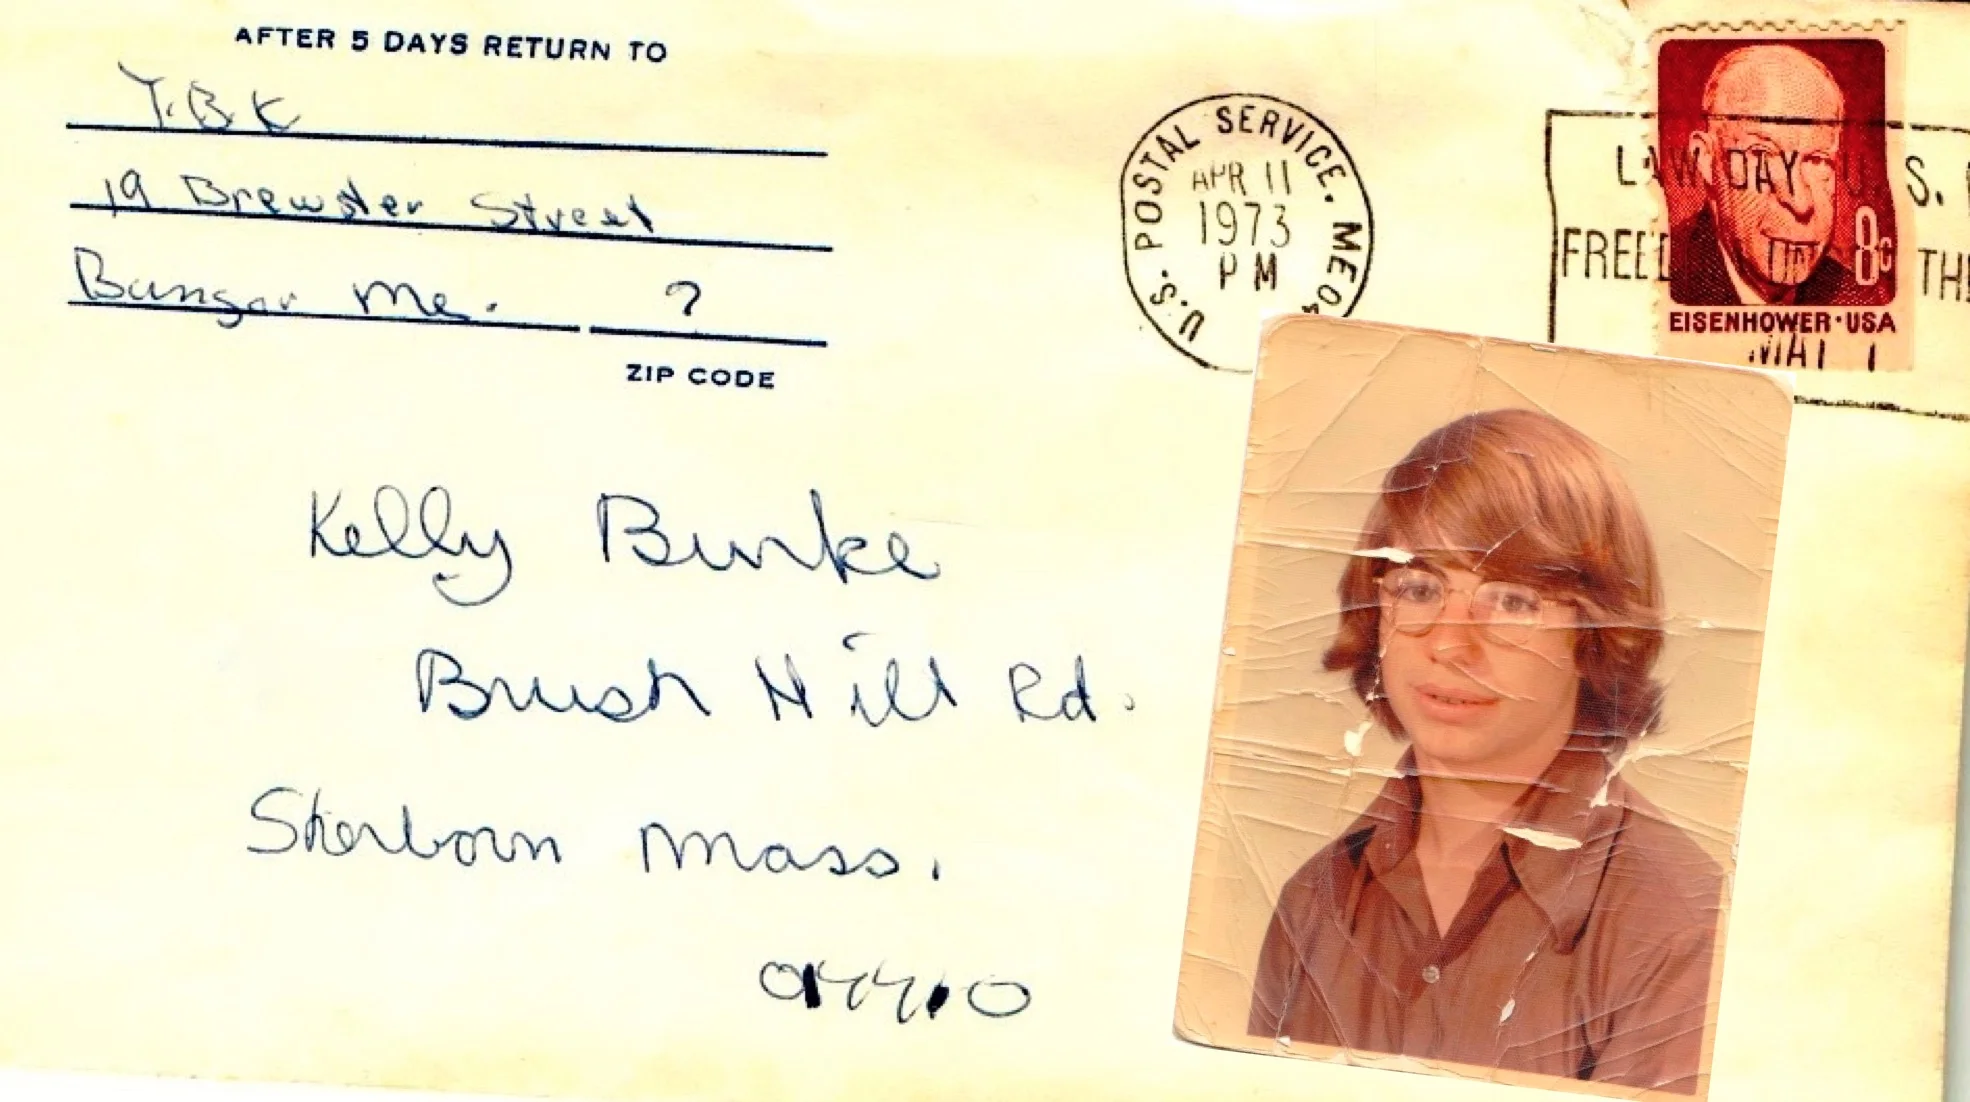 AFTER 5 DAYS RETURN TO
Y.B K
19 Brewster Street
Bangor Me. ?
ZIP CODE
U.S. POSTAL SERVICE. ME
APR 11
1973
PM
LAW DAY U.S.
8c
EISENHOWER·USA
MAY 1
Kelly Burke
Brush Hill Rd.
Sherborn Mass.